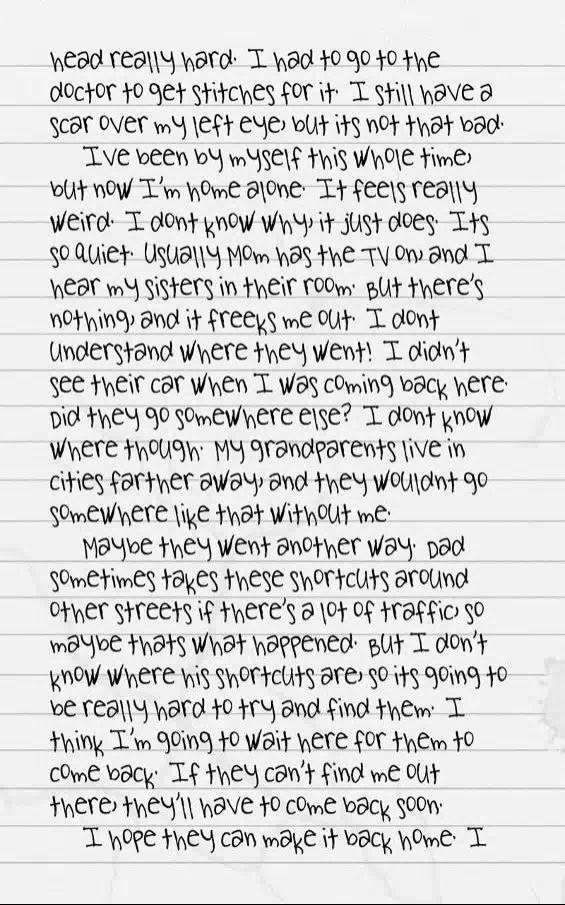 head really hard. I had to go to the
doctor to get stitches for it. I still have a
scar over my left eye, but its not that bad.
Ive been by myself this whole time,
but now I'm home alone. It feels really
weird. I dont know why, it just does. Its
so quiet. Usually Mom has the TV on, and I
hear my sisters in their room. But there's
nothing, and it freeks me out. I dont
understand where they went! I didn't
see their car when I was coming back here.
Did they go somewhere else? I dont know
where though. My grandparents live in
cities farther away, and they wouldnt go
somewhere like that without me.
Maybe they went another way. Dad
sometimes takes these shortcuts around
other streets if there's a lot of traffic, so
maybe thats what happened. But I don't
know where his shortcuts are, so its going to
be really hard to try and find them. I
think I'm going to wait here for them to
come back. If they can't find me out
there, they'll have to come back soon.
I hope they can make it back home. I